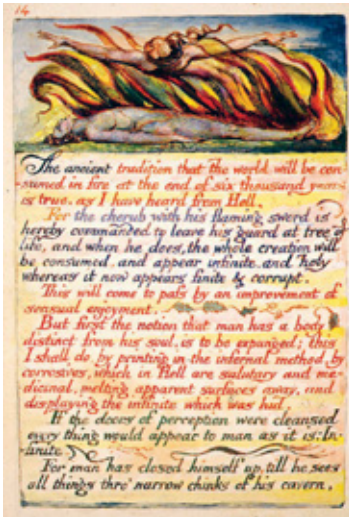 14
The ancient tradition that the world will be con-
-sumed in fire at the end of six thousand years
is true. as I have heard from Hell.
For the cherub with his flaming sword is
hereby commanded to leave his guard at tree of
life, and when he does, the whole creation will
be consumed, and appear infinite. and holy
whereas it now appears finite & corrupt.
This will come to pass by an improvement of
sensual enjoyment.
But first the notion that man has a body
distinct from his soul, is to be expunged; this
I shall do, by printing in the infernal method, by
corrosives, which in Hell are salutary and me-
dicinal, melting apparent surfaces away, and
displaying the infinite which was hid.
If the doors of perception were cleansed
every thing would appear to man as it is: In-
finite.
For man has closed himself up, till he sees
all things thro' narrow chinks of his cavern.